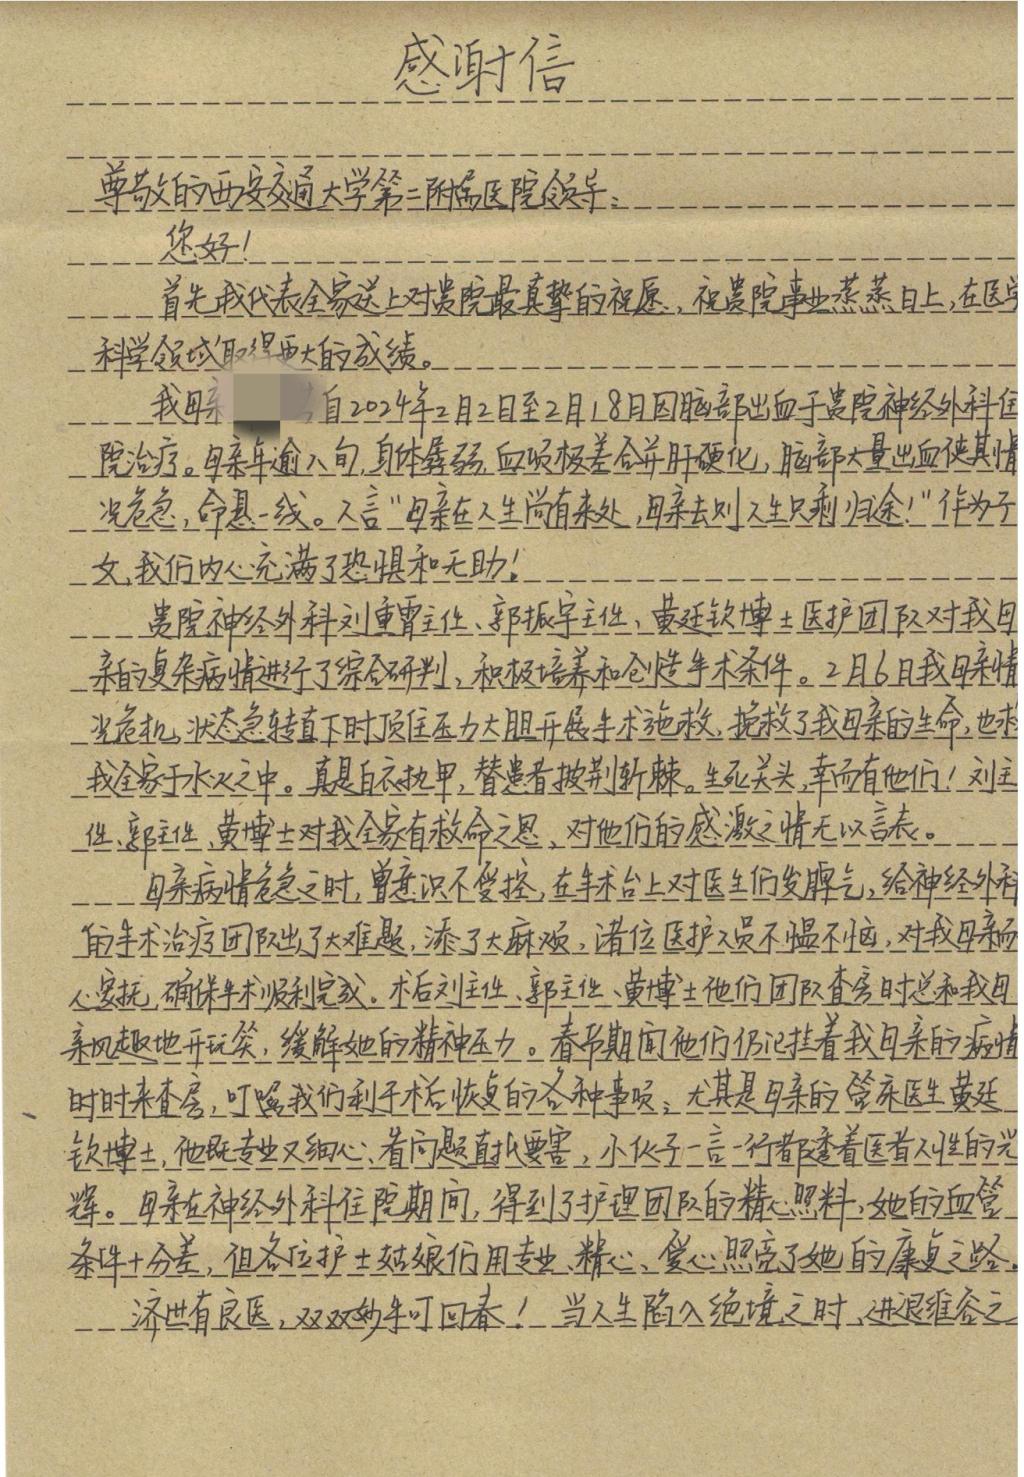 感谢信
尊敬的西安交通大学第二附属医院领导：
您好！
首先我代表全家送上对贵院最真挚的祝愿，祝贵院事业蒸蒸日上，在医学
科学领域取得更大的成绩。
我母亲 自2024年2月2日至2月18日因脑部出血于贵院神经外科住
院治疗。母亲年逾八旬，身体孱弱，血项极差合并肝硬化，脑部大量出血使其情
况危急，命悬一线。人言“母亲在人生尚有来处，母亲去则人生只剩归途！”作为子
女，我们内心充满了恐惧和无助！
贵院神经外科刘重霄主任、郭振宇主任、黄廷钦博士医护团队对我母
亲的复杂病情进行了综合研判，积极培养和创造手术条件。2月6日我母亲情
况危机，状态急转直下时顶住压力大胆开展手术施救，挽救了我母亲的生命，也救
我全家于水火之中。真是白衣执甲，替患者披荆斩棘。生死关头，幸而有他们！刘主
任、郭主任、黄博士对我全家有救命之恩，对他们的感激之情无以言表。
母亲病情危急之时，曾意识不受控，在手术台上对医生们发脾气，给神经外科
的手术治疗团队出了大难题，添了大麻烦，诸位医护人员不愠不恼，对我母亲耐
心安抚，确保手术顺利完成。术后刘主任、郭主任、黄博士他们团队查房时总和我母
亲风趣地开玩笑，缓解她的精神压力。春节期间他们仍记挂着我母亲的病情
时时来查房，叮嘱我们利于术后恢复的各种事项；尤其是母亲的管床医生黄廷
钦博士，他既专业又细心、看问题直抵要害，小伙子一言一行都透着医者人性的光
辉。母亲在神经外科住院期间，得到了护理团队的精心照料，她的血管
条件十分差，但各位护士姑娘们用专业、精心、爱心照亮了她的康复之路。
济世有良医，双双妙手可回春！当人生陷入绝境之时，进退维谷之